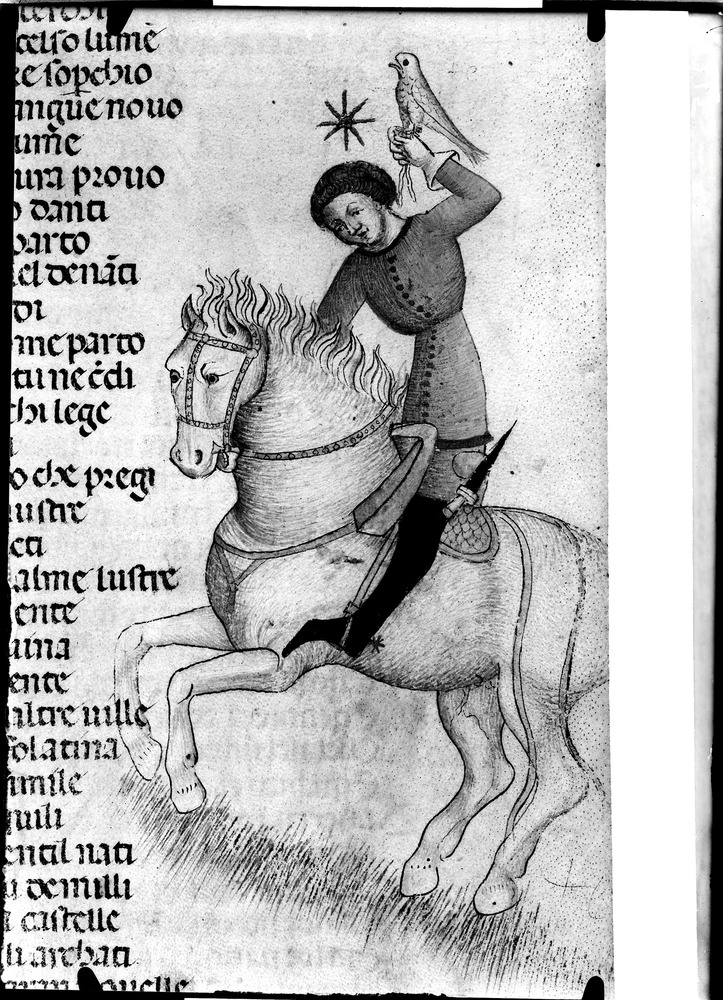 celso lumē
re sop̱chio
angue nouo
ume
ura prouo
danti
parto
el denāti
di
me parto
tu ne c̄di
chi lege
o che pregi
lustre
cti
alme lustre
ente
aina
ente
altre uille
solatina
simile
uili
entil nati
demilli
castelle
li archati
nouelle